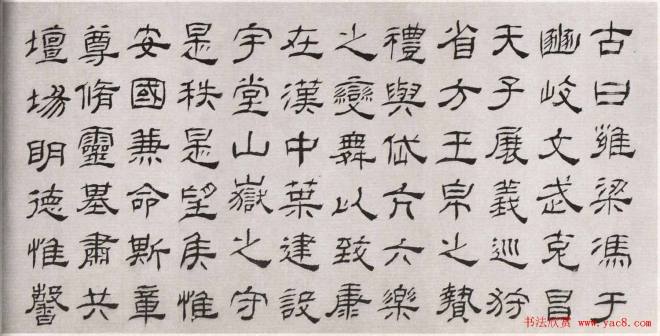 古曰雍梁馮于
豳岐文武克昌
天子展義巡狩
省方玉帛之贄
禮與岱亢六樂
之變舞以致康
在漢中葉建設
宇堂山嶽之守
是秩是望侯惟
安國兼命斯章
尊脩靈基肅共
壇場明德惟馨
书法欣赏 www.yac8.com